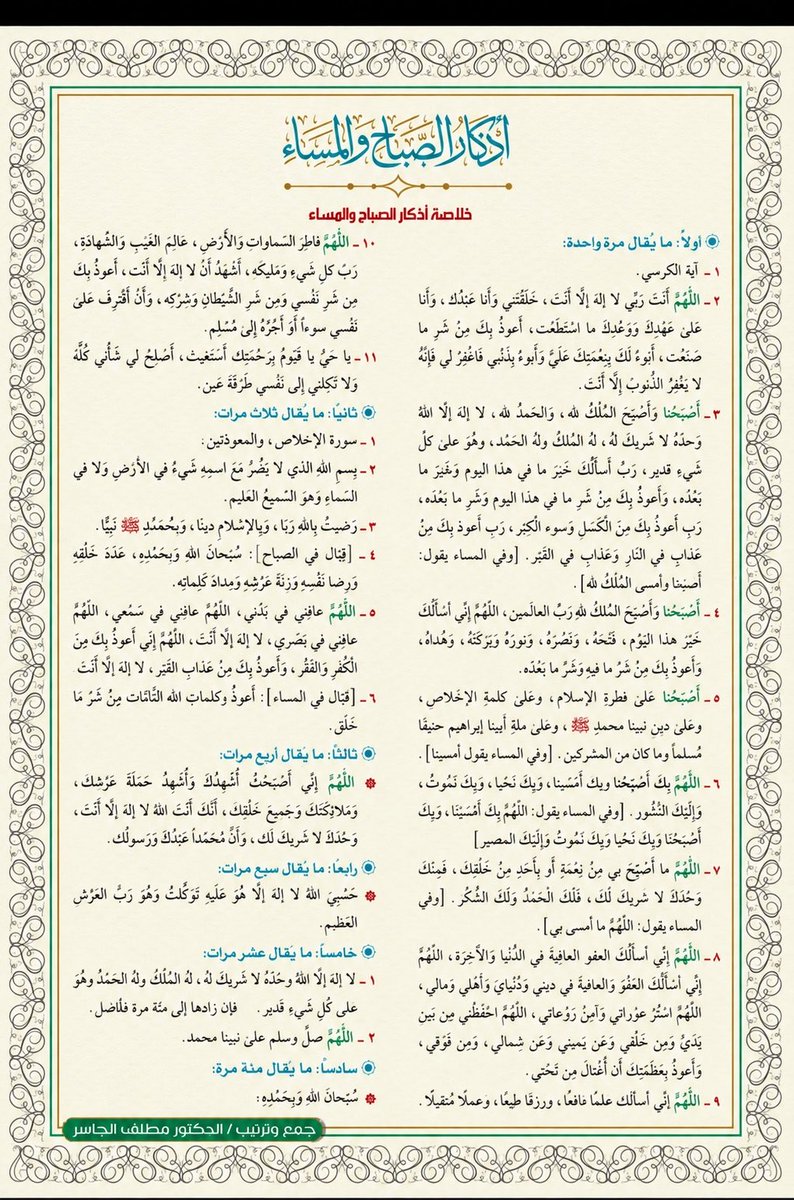 أذكار الصباح والمساء
خلاصة أذكار الصباح والمساء
أولاً: ما يُقال مرة واحدة:
١ ـ آية الكرسي.
٢ ـ اللَّهُمَّ أَنتَ رَبِّي لا إلهَ إلَّا أَنتَ، خَلَقْتَني وَأَنا عَبْدُك، وَأَنا
عَلىٰ عَهْدِكَ وَوَعْدِكَ ما اسْتَطَعْت، أَعوذُ بِكَ مِنْ شَرِ ما
صَنَعْت، أَبُوءُ لَكَ بِنِعْمَتِكَ عَلَيَّ وَأَبوءُ بِذَنْبي فَاغْفِرْ لي فَإِنَّهُ
لا يَغْفِرُ الذُنوبُ إلَّا أَنْتَ.
٣ ـ أَصْبَحْنا وَأَصْبَحَ المُلْكُ لله، وَالحَمدُ لله، لا إلهَ إلَّا اللهُ
وَحدَهُ لا شَريكَ لهُ، لهُ المُلكُ ولهُ الحَمْد، وهُوَ علىٰ كلِّ
شَيءٍ قدير، رَبُّ أَسأَلُكَ خَيْرَ ما في هذا اليوم وَخَيرَ ما
بَعْدَه، وَأَعوذُ بِكَ مِنْ شَرِ ما في هذا اليوم وَشَرِ ما بَعْدَه،
رَبِ أَعوذُ بِكَ مِنَ الْكَسَلِ وَسوء الْكِبَر، رَبِ أعوذ بِكَ مِنْ
عَذابِ في النَارِ وَعَذابِ في القَبْر. [وفي المساء يقول:
أمسينا وأمسى المُلْكُ لله].
٤ ـ أَصْبَحْنا وَأَصْبَحَ المُلكُ للهِ رَبِّ العالَمين، اللَّهُمَّ إِنِّي أَسْأَلُكَ
خَيْرَ هذا اليَوْم، فَتْحَهُ، وَنَصْرَهُ، وَنورَهُ وَبَرَكَتَهُ، وَهُداهُ،
وَأَعوذُ بِكَ مِنْ شَرِّ ما فيهِ وَشَرِّ ما بَعْدَه.
٥ ـ أَصْبَحْنا عَلىٰ فطرةِ الإسلام، وَعَلىٰ كلمةِ الإخلاص،
وَعلىٰ دينِ نبينا محمدٍ ﷺ، وَعَلىٰ ملةِ أبينا إبراهيم حنيفًا
مُسلماً وما كان من المشركين. [وفي المساء يقول أمسينا].
٦ ـ اللَّهُمَّ بِكَ أَصْبَحْنا وبك أَمْسَينا، وَبِكَ نَحْيا، وَبِكَ نَمُوتُ،
وَإِلَيْكَ النُّشُور. [وفي المساء يقول: اللَّهُمَّ بِكَ أَمْسَيْنَا، وَبِكَ
أَصْبَحْنَا وَبِكَ نَحْيا وَبِكَ نَموتُ وَإِلَيْكَ المصير]
٧ ـ اللَّهُمَّ ما أَصْبَحَ بي مِنْ نِعْمَةٍ أَو بِأَحَدٍ مِنْ خَلْقِكَ، فَمِنْكَ
وَحْدَكَ لا شريكَ لَكَ، فَلَكَ الْحَمْدُ وَلَكَ الشُّكْر. [وفي
المساء يقول: اللَّهُمَّ ما أمسى بي].
٨ ـ اللَّهُمَّ إنِّي أسأَلُكَ العفو العافِيةَ في الدُنْيا وَالآخِرَة، اللَّهُمَّ
إنِّي أسْأَلُكَ العَفْوَ وَالعافية في ديني وَدُنْيايَ وَأهْلي ومالي،
اللَّهُمَّ اسْتُرْ عوْراتي وَآمِنْ رَوْعاتي، اللَّهُمَّ احْفَظْني مِن بَين
يَدَيَّ وَمِن خَلْفي وَعَن يَميني وَعَن شِمالي، وَمِن فَوْقي،
وَأَعوذُ بِعَظَمَتِكَ أَن أُغْتالَ مِن تَحْتي.
٩ ـ اللَّهُمَّ إنِّي أسألك علمًا نافعًا، ورزقًا طيبًا، وعملًا مُتقبلًا.
١٠ ـ اللَّهُمَّ فاطِرَ السَماواتِ وَالأَرْضِ، عَالِمَ الغَيْبِ وَالشَّهادَةِ،
رَبُ كلِ شَيءٍ وَمَليكَه، أَشْهَدُ أَنْ لا إلهَ إلَّا أَنْت، أَعوذُ بِكَ
مِن شَرِ نَفْسي وَمِن شَرِ الشَّيْطانِ وَشِرْكِه، وَأَنْ أَقْتَرِفَ عَلىٰ
نَفْسي سوءاً أَوْ أَجُرَّهُ إِلىٰ مُسْلِم.
١١ ـ يا حَيُّ يا قَيُومُ بِرَحْمَتِك أَسْتَغيث، أَصْلِحْ لي شَأْني كُلَّهُ
وَلا تَكِلني إِلى نَفْسي طَرْفَةَ عَين.
ثانيًا: ما يُقال ثلاث مرات:
١ ـ سورة الإخلاص، والمعوذتين:
٢ ـ بِسمِ اللهِ الذي لا يَضُرُّ مَعَ اسمِهِ شَيءٌ في الأرْضِ وَلا في
السَماءِ وَهوَ السَّميعُ العَليم.
٣ ـ رَضيتُ بِاللهِ رَبًا، وَبِالإسْلامِ دينا، وَبِمُحَمَّدٍ ﷺ نَبِيًّا.
٤ ـ [يُقال في الصباح]: سُبْحانَ اللهِ وَبِحَمْدِهِ، عَدَدَ خَلْقِهِ
وَرِضا نَفْسِهِ وَزِنَةَ عَرْشِهِ وَمِدادَ كَلِماتِه.
٥ ـ اللَّهُمَّ عافِني في بَدَني، اللَّهُمَّ عافِني في سَمْعي، اللَّهُمَّ
عافِني في بَصَري، لا إلهَ إلَّا أَنْتَ، اللَّهُمَّ إِنِّي أَعوذُ بِكَ مِنَ
الْكُفْرِ وَالفَقْرُ، وَأَعوذُ بِكَ مِنْ عَذابِ القَبْر، لا إلهَ إلَّا أَنْتَ
٦ ـ [يُقال في المساء]: أَعوذُ وكلماتِ الله التَّامَّات مِنْ شَرّ مَا
خَلَق.
ثالثاً: ما يُقال أربع مرات:
اللَّهُمَّ إِنِّي أَصْبَحْتُ أُشْهِدُكَ وَأُشْهِدُ حَمَلَةَ عَرْشِك،
وَمَلائِكَتَكَ وَجَميعَ خَلْقِكَ، أَنَّكَ أَنْتَ اللهُ لا إلهَ إلَّا أَنْتَ،
وَحْدَكَ لا شَريكَ لَك، وَأَنَّ مُحَمَّداً عَبْدُكَ وَرَسولُك.
رابعًا: ما يُقال سبع مرات:
حَسْبِيَ اللهُ لا إلهَ إلَّا هُوَ عَلَيهِ تَوَكَّلتُ وَهُوَ رَبُّ العَرْش
العَظيم.
خامساً: ما يُقال عشر مرات:
١ ـ لا إلهَ إلَّا اللهُ وحْدَهُ لا شَريكَ لهُ، لهُ المُلْكُ ولهُ الحَمْدُ وهُوَ
على كُلِ شَيءٍ قدير. فإن زادها إلى مئة مرة فأفضل.
٢ ـ اللَّهُمَّ صلِّ وسلم علىٰ نبينا محمد.
سادساً: ما يُقال مئة مرة:
سُبْحَانَ اللهِ وَبِحَمْدِهِ:
جمع وترتيب / الدكتور مطلق الجاسر